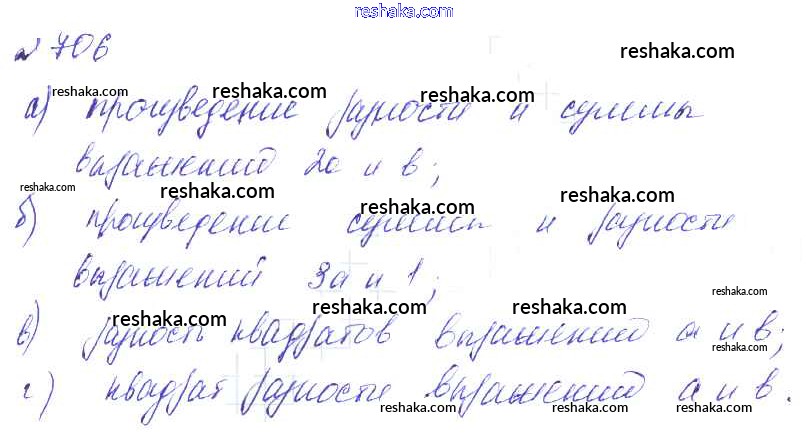 reshaka.com
№ 706
reshaka.com
reshaka.com reshaka.com reshaka.com
а) произведение разности и суммы
reshaka.com
выражений 2а и в;
reshaka.com reshaka.com reshaka.com reshaka.com
б) произведение суммы и разности
reshaka.com
выражений 3а и 1;
reshaka.com
reshaka.com reshaka.com reshaka.com
в) разность квадратов выражений а и в;
reshaka.com
reshaka.com reshaka.com
г) квадрат разности выражений а и в.
reshaka.com reshaka.com reshaka.com